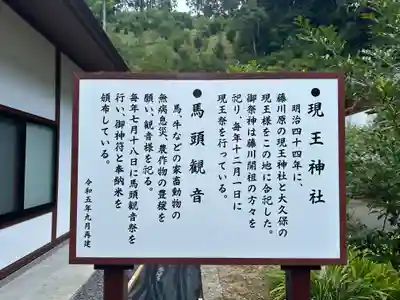 ●現王神社
明治四十四年に、
藤川原の現王神社と大久保の
現王様をこの地に合記した。
御祭神は藤川開祖の方々を
祀り、毎年十二月一日に
現王祭を行っている。
●馬頭観音
馬、牛などの家畜動物の
無病息災、農作物の豊穣を
願い、観音様を祀る。
毎年七月十八日に馬頭観音祭を
行い、御神符と奉納米を
頒布している。
令和五年九月再建